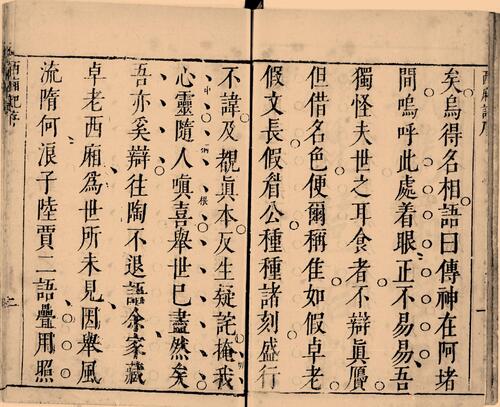 西廂記序
一
矣烏得名相語曰傳神在阿堵
間嗚呼此處着眼正不易易吾
獨怪夫世之耳食者不辯眞贋
但借名色便爾稱佳如假卓老
假文長假眉公種種諸刻盛行
不諱及觀眞本反生疑詫掩我
心靈隨人嗔喜舉世已盡然矣
吾亦奚辯往陶不退語余家藏
卓老西廂爲世所未見因舉風
流隋何浪子陸賈二語疊用照
西廂記序
二